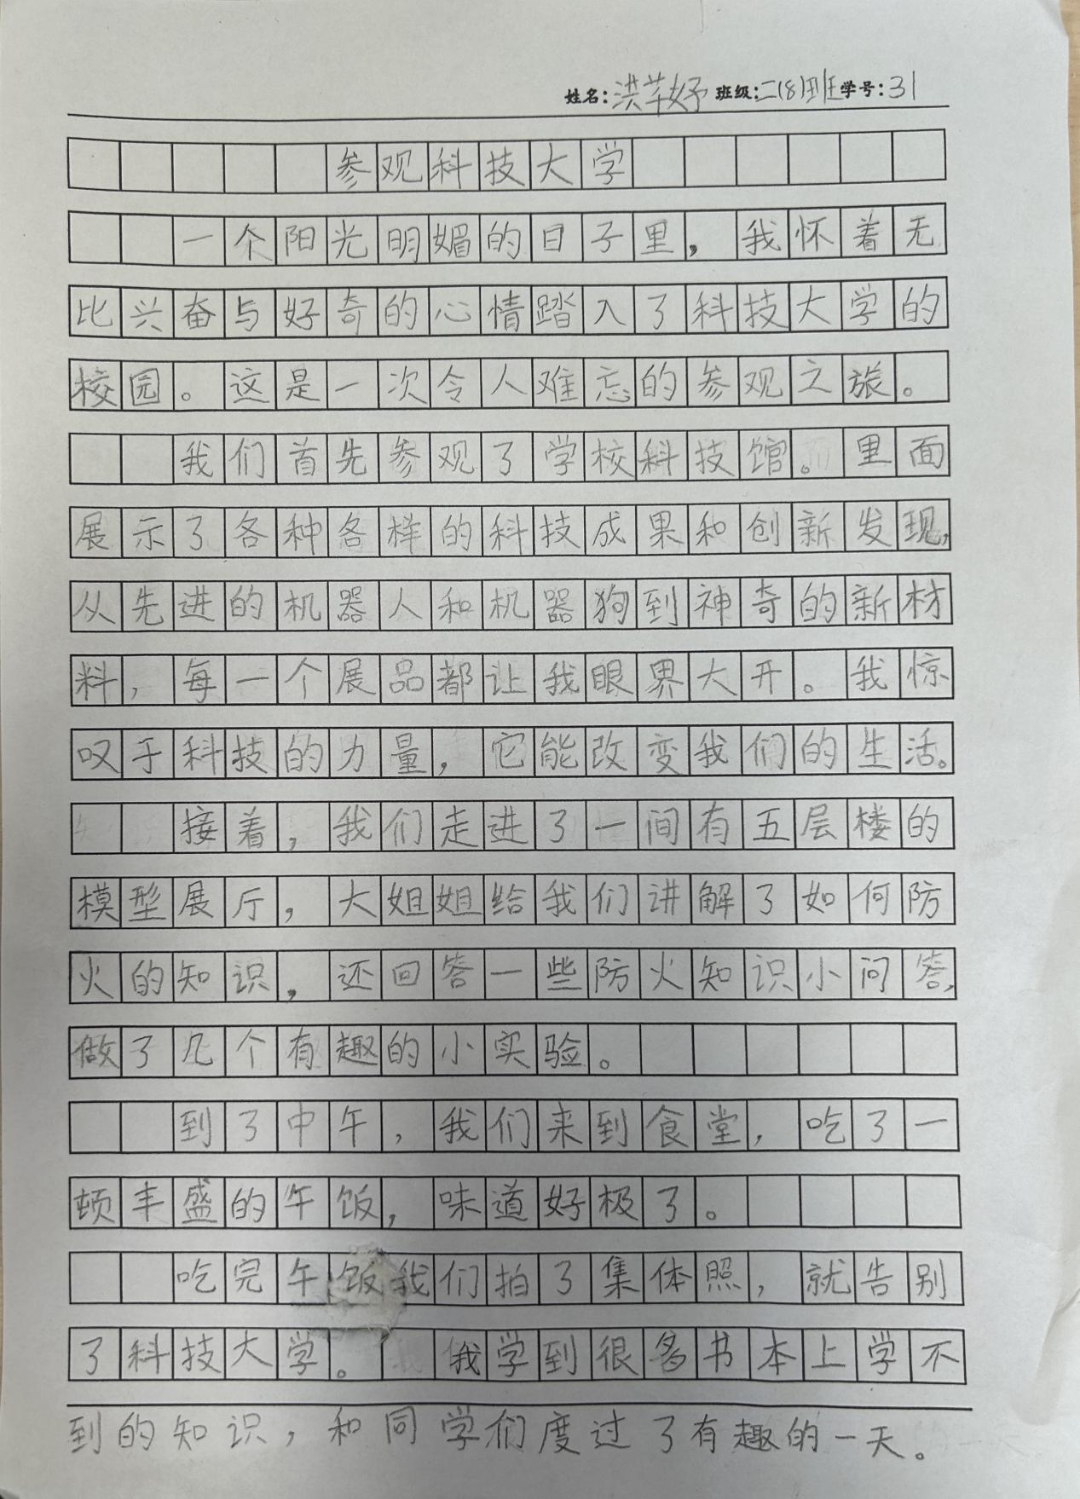 姓名：洪芊妤 班级：二(8)班 学号：31
参观科技大学
一个阳光明媚的日子里，我怀着无
比兴奋与好奇的心情踏入了科技大学的
校园。这是一次令人难忘的参观之旅。
我们首先参观了学校科技馆。里面
展示了各种各样的科技成果和创新发现，
从先进的机器人和机器狗到神奇的新材
料，每一个展品都让我眼界大开。我惊
叹于科技的力量，它能改变我们的生活。
接着，我们走进了一间有五层楼的
模型展厅，大姐姐给我们讲解了如何防
火的知识，还回答一些防火知识小问答，
做了几个有趣的小实验。
到了中午，我们来到食堂，吃了一
顿丰盛的午饭，味道好极了。
吃完午饭我们拍了集体照，就告别
了科技大学。我学到很多书本上学不
到的知识，和同学们度过了有趣的一天。